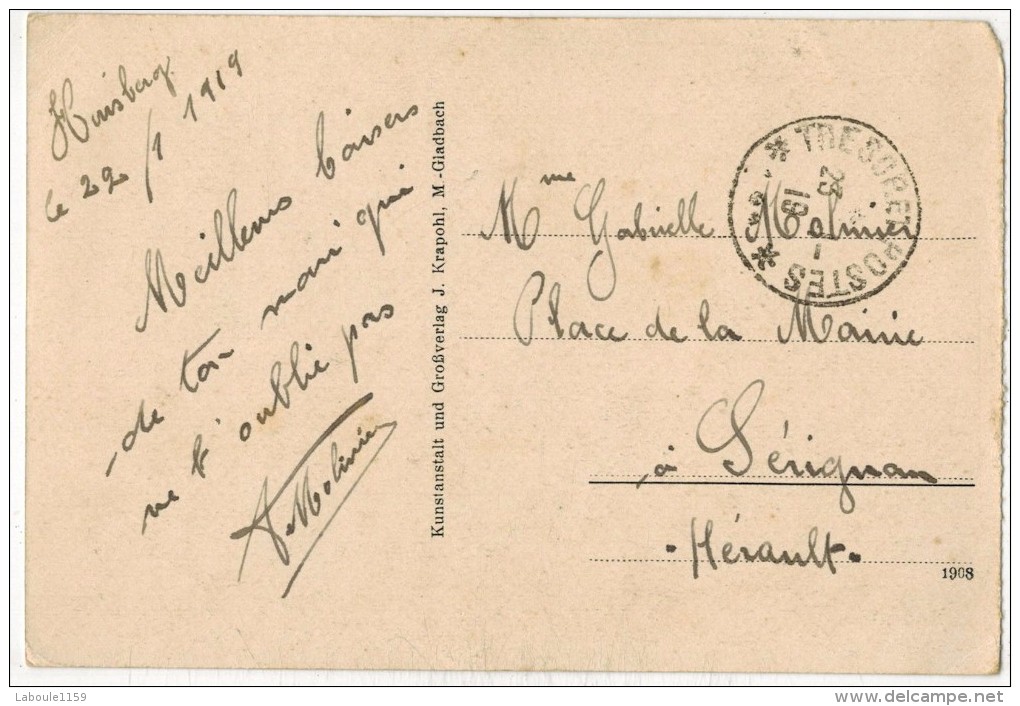 Hinsberg
le 22/1 1919
Meilleurs baisers
de ton mari qui
ne t'oublie pas
A Molinier
Kunstanstalt und Großverlag J. Krapohl, M.-Gladbach
* TRESOR ET POSTES *
23
1
19
Mme Gabrielle Molinier
Place de la Mairie
à Sérignan
- Hérault -
1908
Laboule1159
delcampe.net